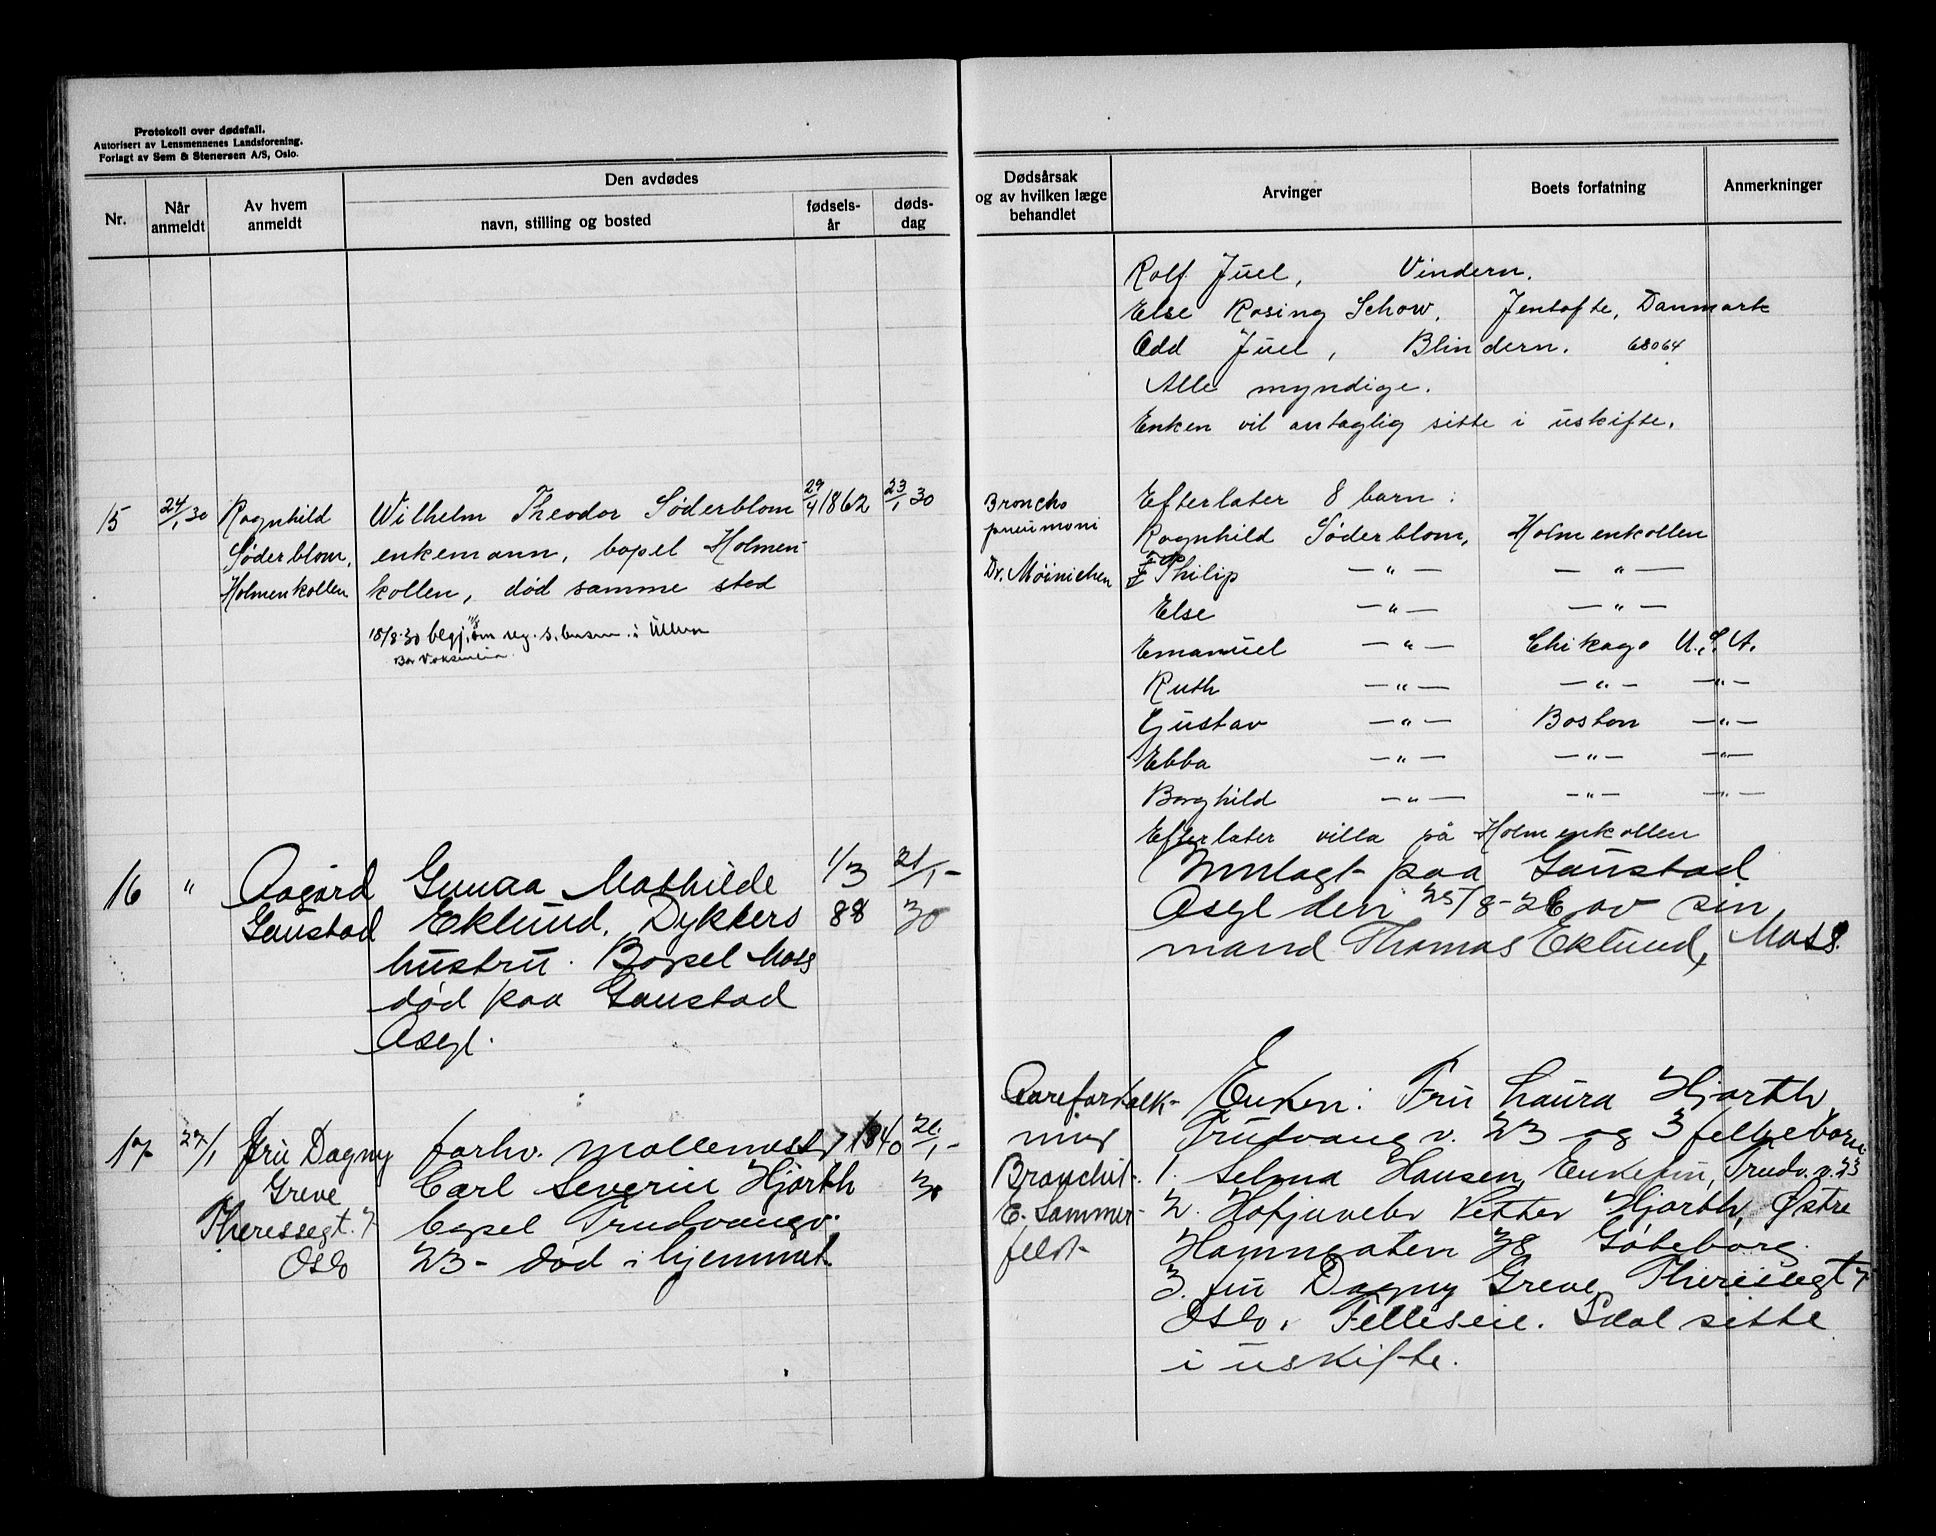 Protokoll over dødsfall.
Autorisert av Lensmennenes Landsforening.
Forlagt av Sem & Stenersen A/S, Oslo.
Nr.
Når anmeldt
Av hvem anmeldt
Den avdødes
navn, stilling og bosted
fødsels-år
døds-dag
15
24/1 30
Ragnhild
Söderblom,
Holmenkollen
Wilhelm Theodor Söderblom
enkemann, bopel Holmen-
kollen, død samme sted
18/8-30 begj. om reg. s. busen. i Ullern
29/4 1862
23/1 30
16
"
Aagård
Gaustad
Gunda Mathilde
Eklund. Dykkers
hustru. Bopel Moss
død paa Gaustad
Asyl.
1/3
88
21/1-
30
17
27/1
Fru Dagny
Greve
Theresegt. 7
Oslo
forhv. møllemest.
Carl Severin Hjorth
bopel Trudvangv.
23- død i hjemmet
1840
26/1-
30
Dødsårsak
og av hvilken læge
behandlet
Arvinger
Boets forfatning
Anmerkninger
Rolf Juel, Vindern.
Else Rosing Schow, Jentofte, Danmark
Odd Juel, Blindern. 68064
Alle myndige.
Enken vil antaglig sitte i uskifte.
Broncho
pneumoni
Dr. Möinichen
Efterlater 8 barn:
Ragnhild Söderblom, Holmenkollen
Philip —"— —"—
Else —"— —"—
Emanuel —"— Chikago U.S.A.
Ruth —"— —"— —"—
Gustav —"— Boston —"—
Ebba —"— —"— —"—
Borghild —"— —"— —"—
Efterlater villa på Holmenkollen
Innlagt paa Gaustad
Asyl den 25/8-26 av sin
mand Thomas Eklund, Moss.
Aareforkalk-
ning
Bronchit.
E. Sommer-
feldt
Enken: Fru Laura Hjorth
Trudvangv. 23 og 3 fellesbarn
1. Selma Hansen, Enkefru, Trudv.v. 23
2. Hofjuveler Petter Hjorth, Østre
Hamngaten 38 Göteborg.
3. fru Dagny Greve Theresegt 7
Oslo. Felleseie. Skal sitte
i uskifte.